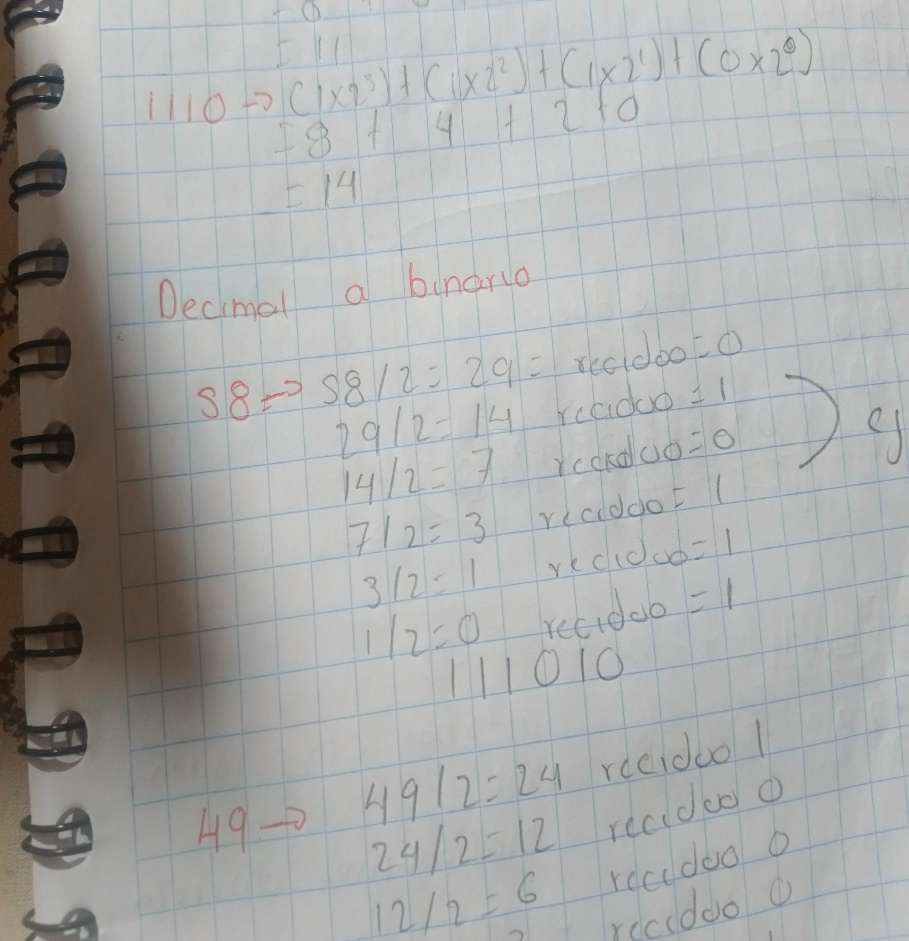 = 11
1110 → (1x2³)+(1x2²)+(1x2¹)+(0x2⁰)
= 8 + 4 + 2+0
= 14
Decimal a binario
58 → 58/2 = 29 = reciduo = 0
29/2 = 14 reciduo = 1
14/2 = 7 reciduo = 0
7/2 = 3 reciduo = 1
3/2 = 1 reciduo = 1
1/2 = 0 reciduo = 1
111010
49 → 49/2 = 24 reciduo 1
24/2 = 12 reciduo 0
12/2 = 6 reciduo 0
reciduo 0